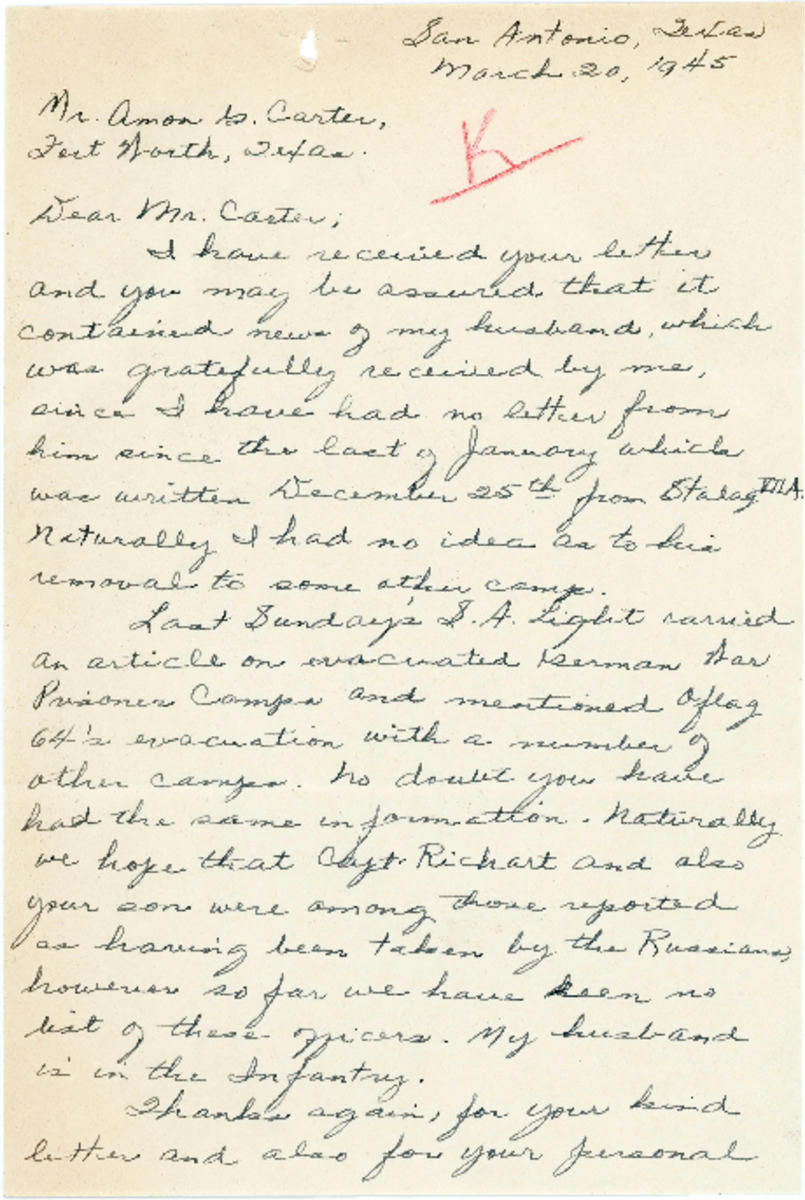 San Antonio, Texas
March 20, 1945
Mr. Amon G. Carter,
Fort Worth, Texas.
K
Dear Mr. Carter;
I have received your letter
and you may be assured that it
contained news of my husband, which
was gratefully received by me,
since I have had no letter from
him since the last of January which
was written December 25th from Stalag VIIA.
Naturally I had no idea as to his
removal to some other camp.
Last Sunday's S.A. Light carried
an article on evacuated German War
Prisoner Camps and mentioned Oflag
64's evacuation with a number of
other camps. No doubt you have
had the same information. Naturally
we hope that Capt. Richart and also
your son were among those reported
as having been taken by the Russians,
however so far we have seen no
list of these officers. My husband
is in the Infantry.
Thanks again, for your kind
letter and also for your personal